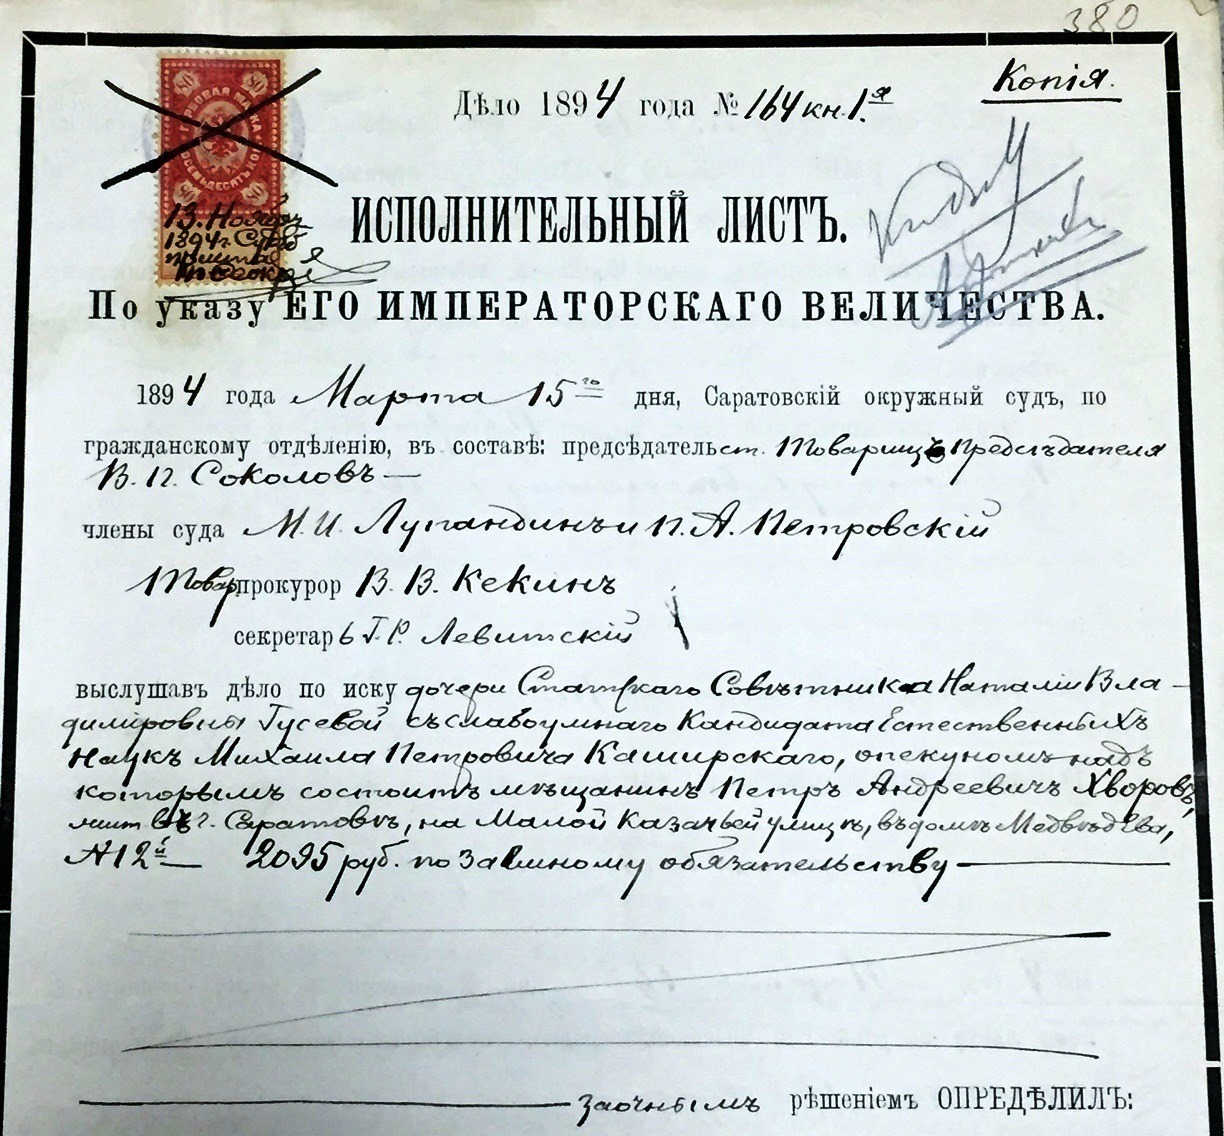 380
Копія.
Дѣло 1894 года № 164 кн. 1.я
80 80
ГЕРБОВАЯ МАРКА
ВОСЕМЬДЕСЯТЪ КОП.
80 80
13. Ноябрь
1894 г. Судеб
ИСПОЛНИТЕЛЬНЫЙ ЛИСТЪ.
По указу ЕГО ИМПЕРАТОРСКАГО ВЕЛИЧЕСТВА.
1894 года Марта 15го дня, Саратовскій окружный судъ, по
гражданскому отдѣленію, въ составѣ: предсѣдательст. Товарищъ Предсѣдателя
В. П. Соколовъ —
члены суда М. И. Лупандинъ и П. А. Петровскій
Товар. прокурор В. В. Кекинъ
секретарь Г. Р. Левитскій
выслушавъ дѣло по иску дочери Статскаго Совѣтника Наталіи Вла-
димировны Гусевой съ слабоумнаго Кандидата Естественныхъ
Наукъ Михаила Петровича Каширскаго, опекуномъ надъ
которымъ состоитъ мѣщанинъ Петръ Андреевичъ Хворовъ,
жит. въ г. Саратовѣ, на Малой Казачьей улицѣ, въ домѣ Медвѣдева,
№ 12й — 2095 руб. по заемному обязательству —
— заочнымъ рѣшеніемъ ОПРЕДѢЛИЛЪ: